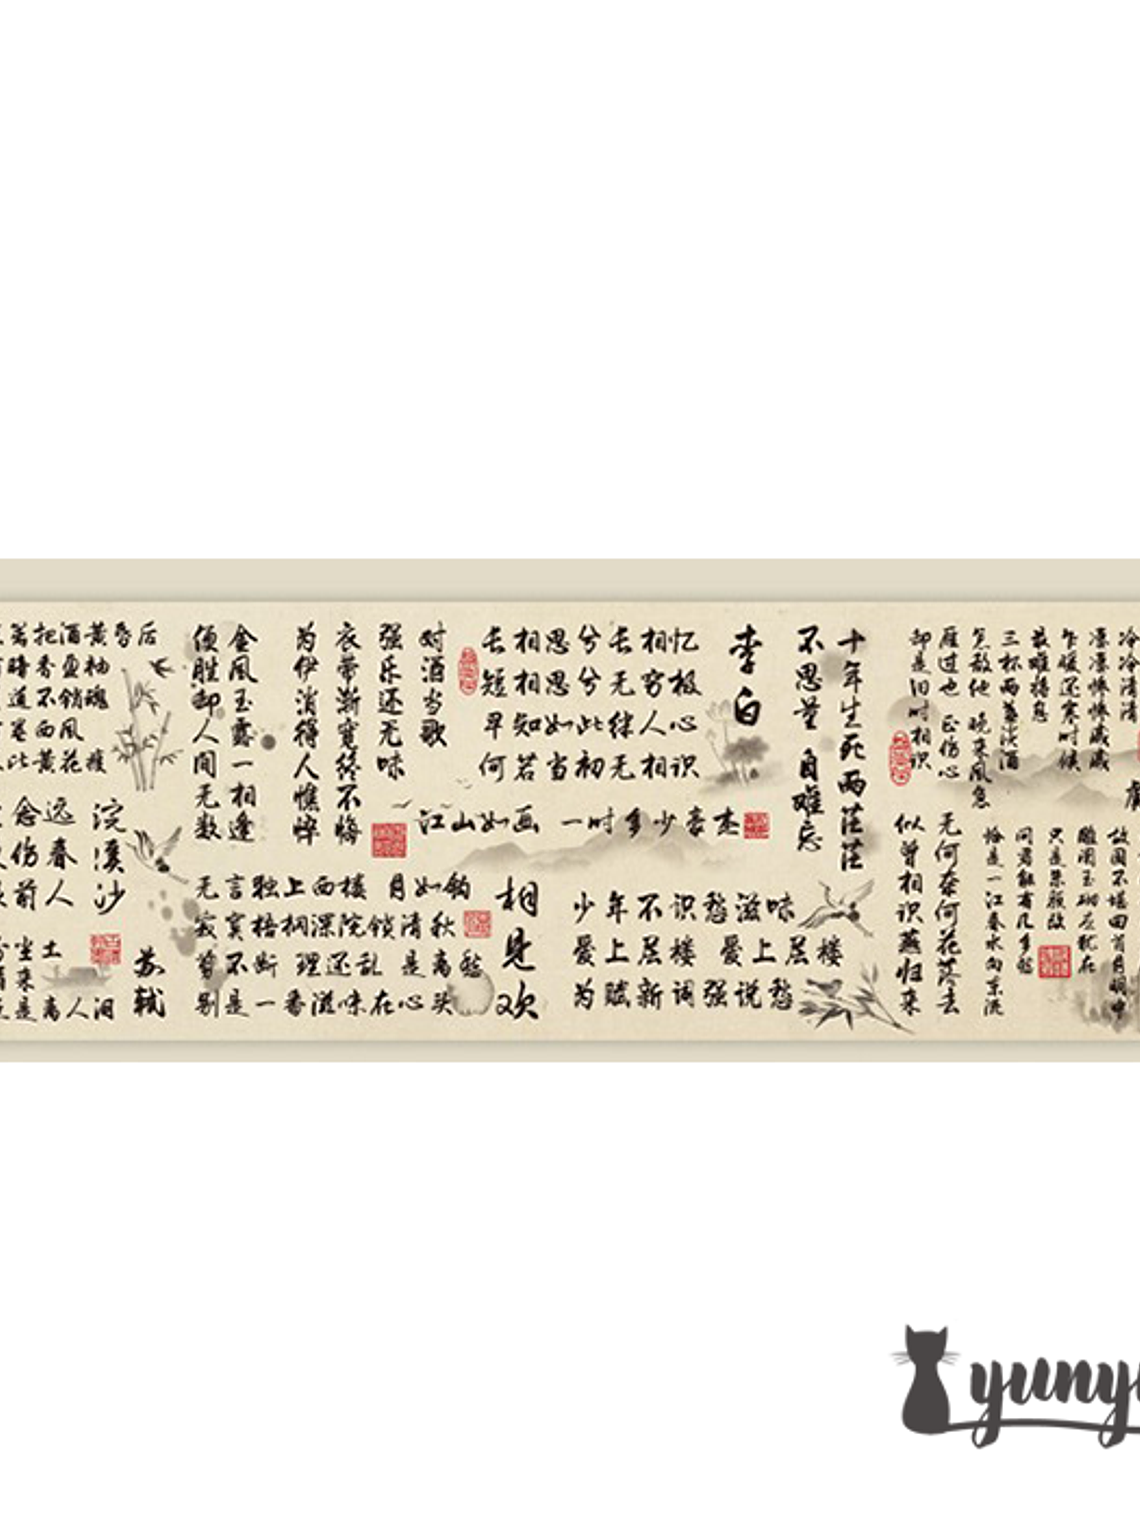 冷冷清清
凄凄惨惨戚戚
乍暖还寒时候
最难将息
三杯两盏淡酒
怎敌他 晚来风急
雁过也 正伤心
却是旧时相识
故国不堪回首月明中
雕阑玉砌应犹在
只是朱颜改
问君能有几多愁
恰是一江春水向东流
无何奈何花落去
似曾相识燕归来
十年生死两茫茫
不思量 自难忘
李白
忆极心识
相穷人相
长无绿无
兮兮此初
思思如当
相相知若
长短早何
江山如画 一时多少豪杰
少年不识愁滋味
爱上层楼 爱上层楼
为赋新词强说愁
对酒当歌
强乐还无味
衣带渐宽终不悔
为伊消得人憔悴
金风玉露一相逢
便胜却人间无数
相见欢
无言独上西楼 月如钩
寂寞梧桐深院锁清秋
剪不断 理还乱 是离愁
别是一番滋味在心头
后
昏
黄柚魂 瘦
酒盈销风花
把香不西黄
浣溪沙
苏轼
远春人
念伤前
土
人泪
yuny